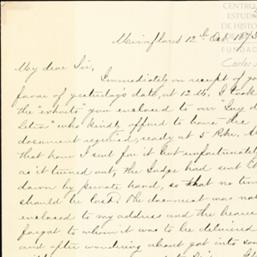 CENTRO
ESTUDI
DE HISTO
FUNDAC
Carlos S
12th Oct. 187
My dear Sir,
Immediately on receipt of yo
favor of yesterday's date, at 12 M. I took
the "exhorto" you enclosed to our "Juez de
Letras" who kindly offered to have the
document required, ready at 5 P.M. At
that hour I sent for it but unfortunately
as it turned out, the Judge had sent it
down by private hand, so that no time
should be lost. The document was not
enclosed to my address and the bearer
forgot to whom it was to be delivered
and after wandering about got into som